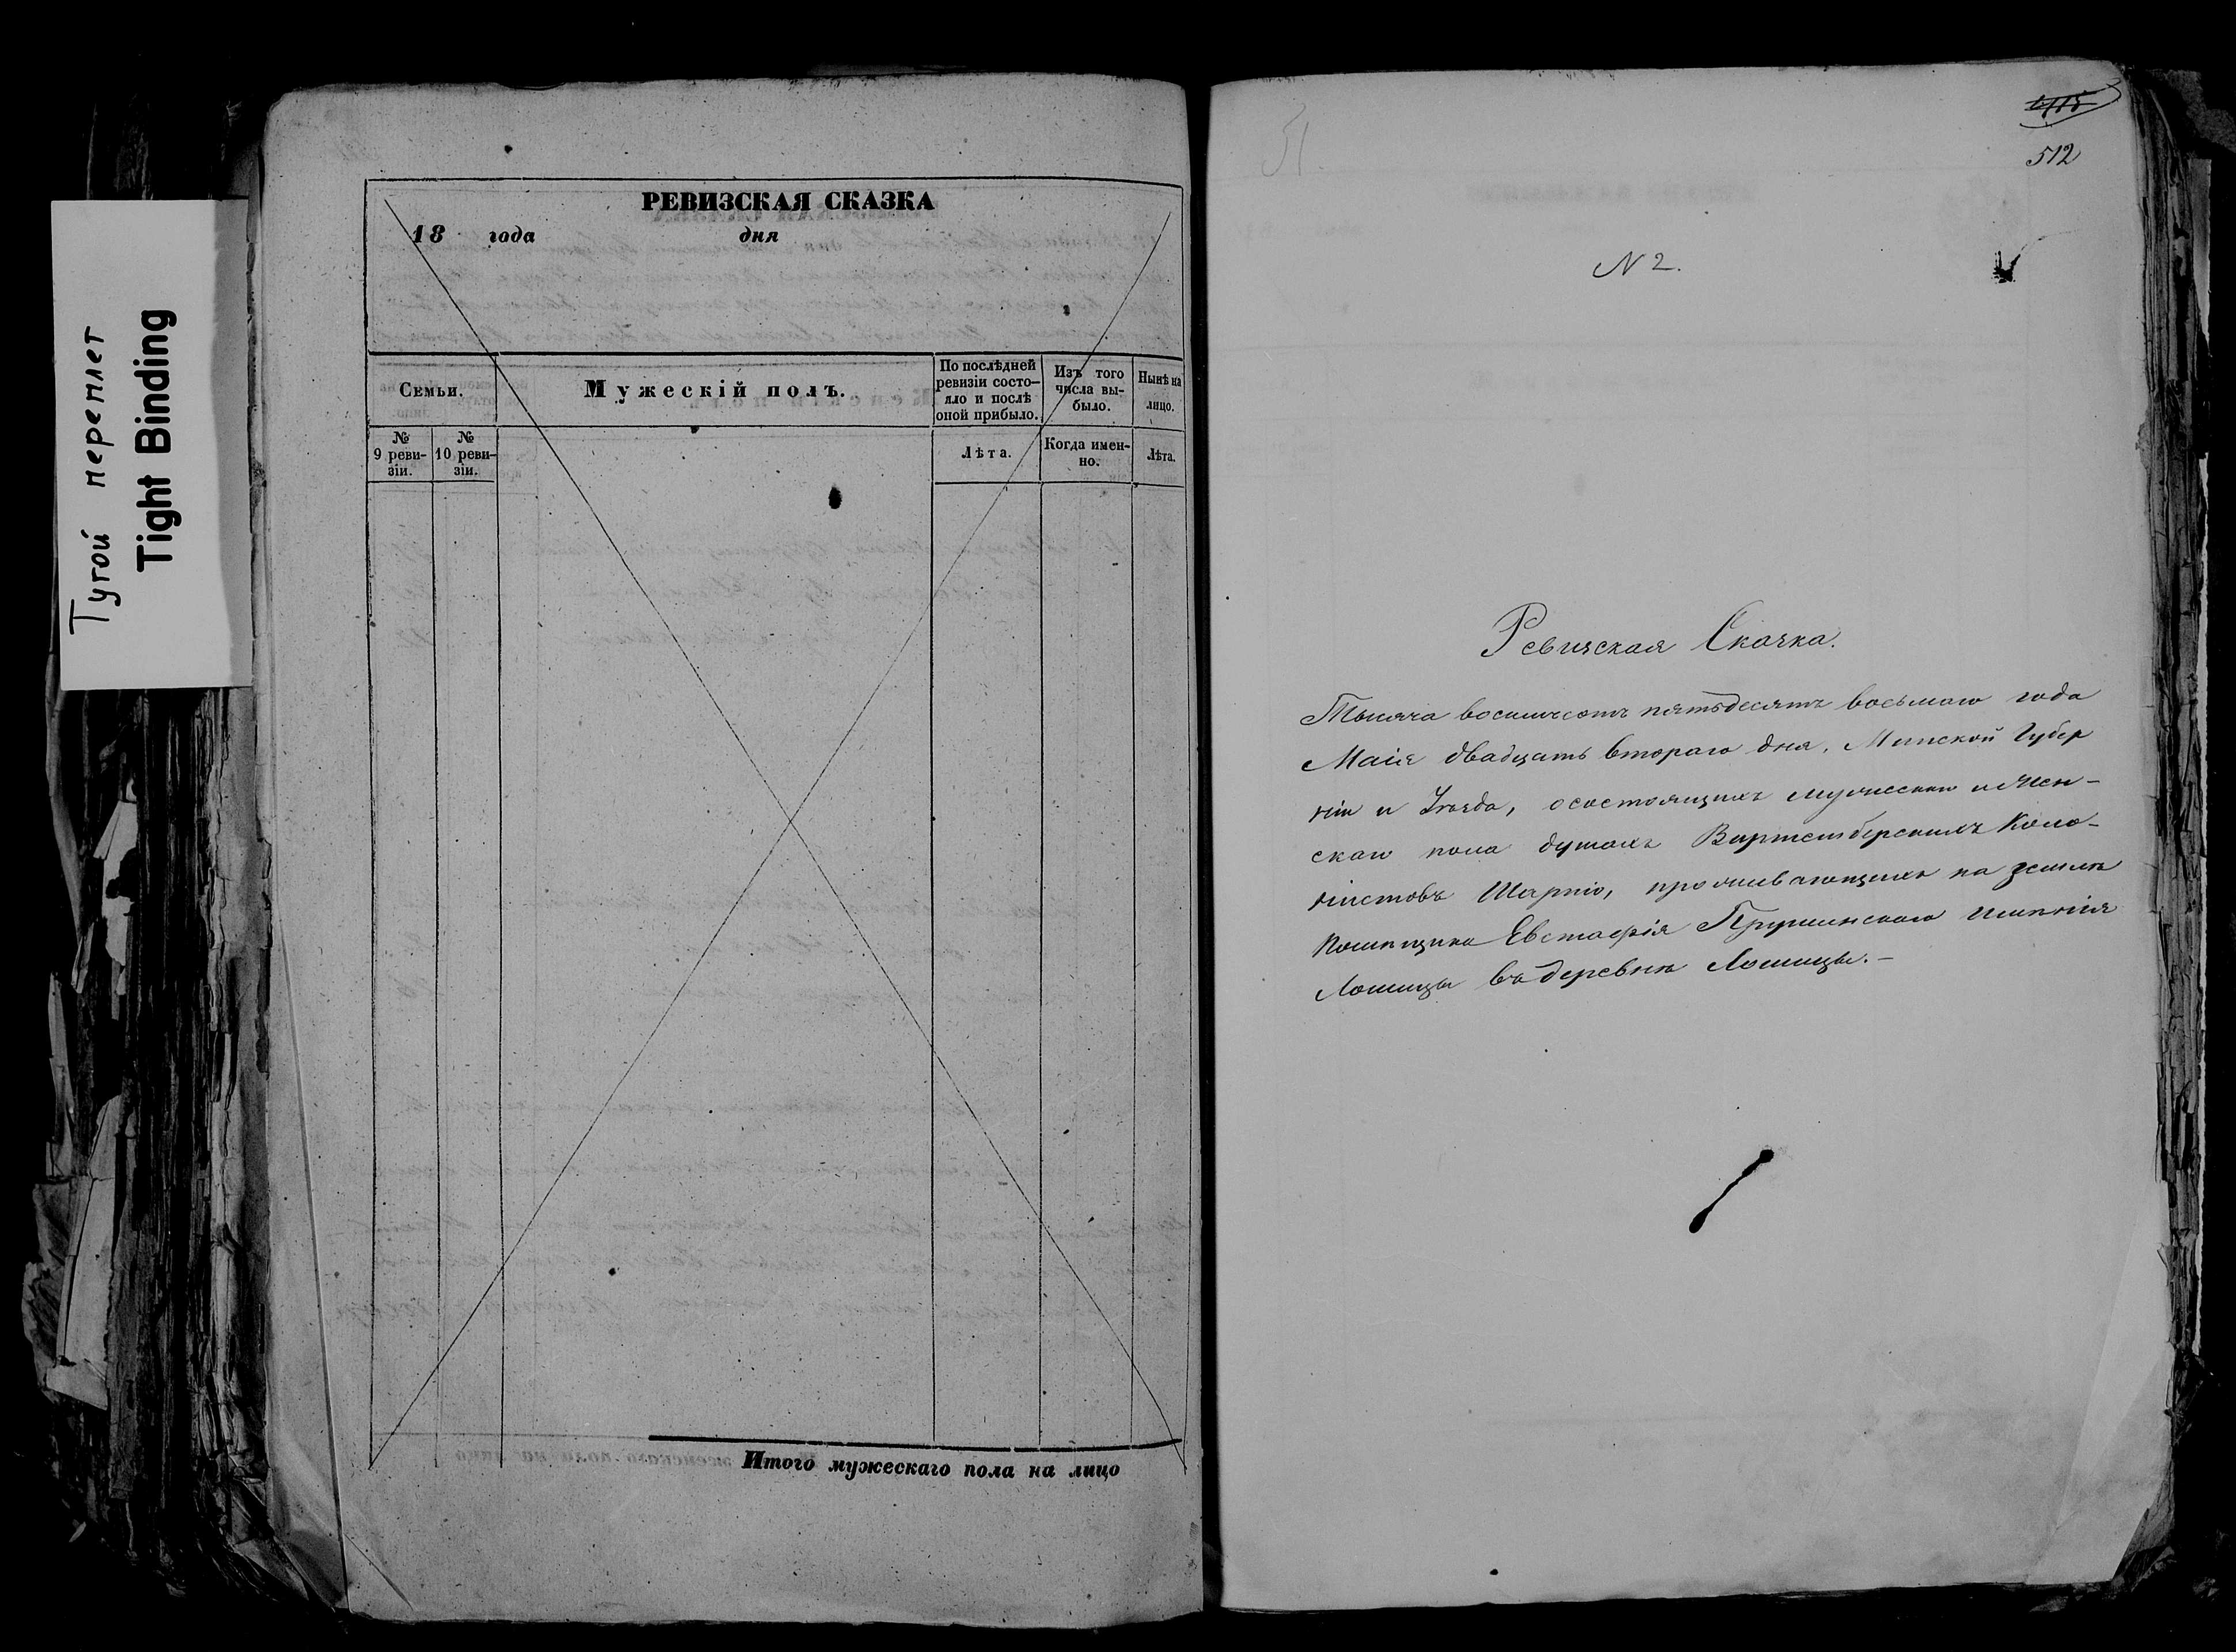 Тугой переплет
Tight Binding
РЕВИЗСКАЯ СКАЗКА
18 года дня
Семьи.
Мужескій полъ.
По послѣдней ревизіи состо-
яло и послѣ оной прибыло.
Изъ того числа вы-
было.
Нынѣ на лицо.
№ 9 реви-
зіи.
№ 10 реви-
зіи.
Лѣта.
Когда имен-
но.
Лѣта.
Итого мужескаго пола на лицо
51.
512
N 2.
Ревизская Сказка.
Тысяча восимсотъ пятьдесятъ восьмаго года
Маія двадцать втораго дня, Минской Губер
ніи и Уѣзда, о состоящихъ мужескаго и Жен-
скаго пола душахъ Виртембергскихъ Коло-
нистовъ проживающихъ на землѣ
Помѣщика Евстафія Прушинскаго имѣнія
Лошицы въ деревнѣ Лошицы.-